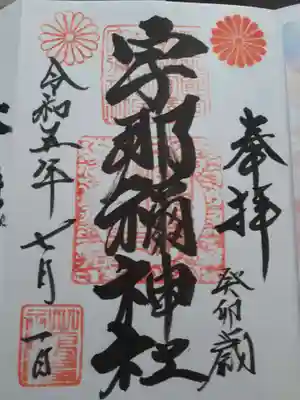 奉拝
癸卯歳
宇那禰神社
令和五年七月一日